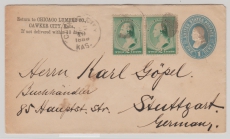 Return to CHICAGO LUMBER CO.
CAWKER CITY, Kan.
If not delivered within 10 days.
KAS.
Herrn Karl Göpel.
Buchhändler
85 Hauptst. Str.
Stuttgart.
Germany.